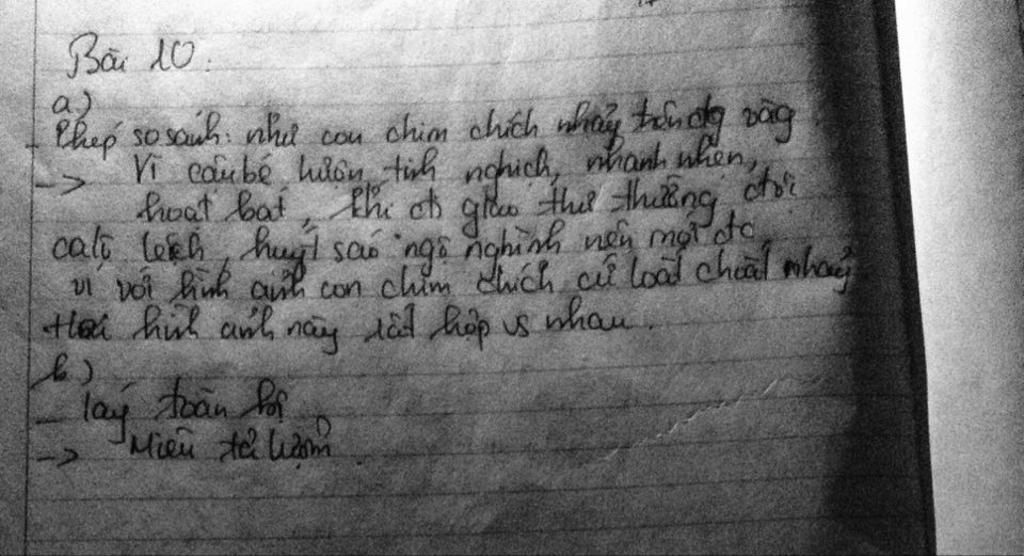 Bài 10:
a)
- Phép so sánh: như con chim chích nhảy trên đg vàng
-> Vì cậu bé luôn tinh nghịch, nhanh nhẹn,
hoạt bát, khi đi giao thư thường đội
calô lệch, huýt sáo ngộ nghĩnh nên mới đc
ví với hình ảnh con chim chích cứ loắt choắt nhảy
Hai hình ảnh này rất hợp vs nhau.
b)
- láy toàn bộ
-> Miêu tả Lượm